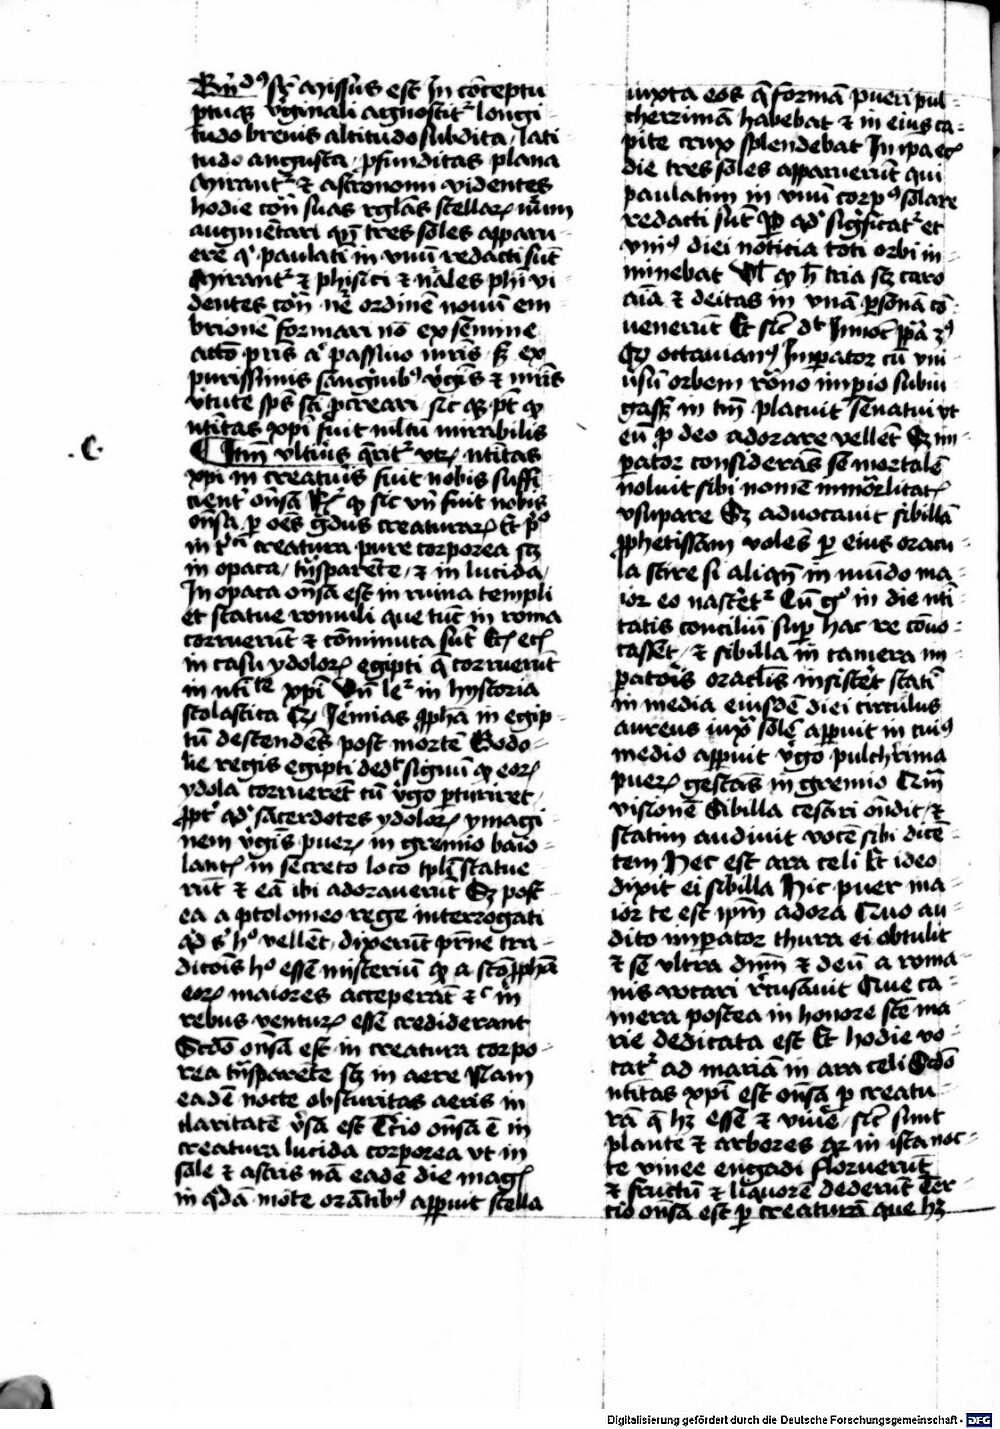 Bn̄dꝯ sr̄ Missus est In cōceptu
ptuqꝫ v̓ginali agnoscitᷣ longi
tudo brevis altitudo subdita / lati
tudo angusta / ꝓfunditas plana
Mirantᷣ ⁊ astronomi videntes
hodie con̄ suas rgl̄as stellaꝝ nu᷑m
augmētari qn̄ tres soles apparu-
erē qͥ paulatī in vnū redacti sūt
Mirantᷣ ⁊ phisici ⁊ nr̄ales phi vi-
dentes con̄ nr̄e ordinē novū em-
brionē formari nō ex semine
actō pr̄is aͨ passivo mr̄is sꝫ ex
purissimis sāguībꝰ v̓gīs ⁊ mr̄is
v̓tute sp̄s sc̄i ꝓcreari sic qꝫ pꝫ qꝫ
nt̄itas xp̄i fuit mltū mirabilis
Itm̄ vlti᷑us q̄ritᷣ vtꝝ nt̄itas
xp̄i in creatu᷑is fuit nobis suffi-
cient᷑ on̄sa Rͩ qꝫ sic vn̄ fuit nobis
on̄sa ꝑ oēs gͣdus creaturaꝝ Et pͥo
in creatura pure corporea scꝫ
in opaca / tn̄sparēte / ⁊ in lucida /
In opaca on̄sa est in ruina templi
et statue romuli que tūc in roma
corruerūt ⁊ cōminuta sūt Etꝭ etꝭ
in casu ydoloꝝ egipti q̄ corruerūt
in nti᷑te xp̄i Vn̄ leᷣ in hystoria
scolastica Qꝫ Iēmias ꝓphā in egip-
tū descendēs post mortē Godo-
lie regis egipti dedͭ signū qꝫ eoꝝ
ydola corrueret cū v̓go ꝑturiret
ꝓptͬ qͩ sacerdotes ydoloꝝ ymagi
nem v̓gīs pueꝝ in gremio baio-
lantꝭ in secreto loco tpl̄i statue-
rūt ⁊ eā ibi adoraverūt Sꝫ post
ea a ptolomeo rege interrogati
qͩ sͥ hͦ vellēt / dixerūt pr̄ne tra-
dicōis hͦ esse misteriū qꝫ a scō ꝓphā
eoꝝ maiores acceperāt ⁊ͨ in
rebus ventuꝝ esse crediderant
Scdō on̄sa est in creatura corpo-
rea tn̄sparēte scꝫ in aere Nam
eadē nocte obscuritas aeris in
claritatē v̓sa est Tc̄io on̄sa ē in
creatura lucida corporea vt in
sole ⁊ astris nā eadē die magꝭ
in qͣdā mōte orātibꝰ apparuit stella
.C.
iuxta eos q̄ formā pueri pul-
cherrimā habebat ⁊ in eius ca-
pite crux splendebat In ipa eꝭ
die tres soles apparuerūt qui
paulatim in vnū corpꝰ solare
redacti sūt Per qͩ significatᷣ et
vniꝰ diei noticia toti orbi in-
minebat Vl̄ qꝫ h̄ tria scꝫ caro
aīa ⁊ deitas in vnā ꝑsonā cō-
venerūt Et sicͭ dͭ Innoc̄ ppā 3ꝰ
Qꝫ octavianꝰ Imperator cū vni-
v̓sū orbem rōno impio subiu-
gasꝫ in tm̄ placuit senatui vt
eū ꝓ deo adorare vellēt Sꝫ im-
perator considerās se mortalē
noluit sibi nomē inmōrlitatꝭ
vsupare Sꝫ advocavit sibillā
ꝓphetissam volēs ꝑ eius oracu-
la scire si aliqn̄ in mūdo ma-
ior eo nascēt᷑ Cū gͦ in die nti-
tatis conciliū suꝑ hac re cōvo-
casset / ⁊ sibilla in camera im-
peratōis oracl̄is insistēt stati᷑
in media eiusdē diei circulus
aureus iuxͣ solē apparuit in cuiꝰ
medio apparuit v̓go pulch᷑rima
pueꝝ gestās in gremio Cum̄
visionē Sibilla cesari on̄dit / ⁊
statim audivit vocē sibi dicē-
tem Hec est ara celi Et ideo
dixit ei sibilla Hic puer ma-
ior te est ipm̄ adora Quo au-
dito imperator thura ei obtulit
⁊ se vltra dnm̄ ⁊ deū a roma-
nis vocari r̓cusavit Que ca-
mera postea in honore scē ma
rie dedicata est Et hodie vo-
catᷣ ad mariā in ara celi Scdō
ntitas xp̄i est on̄sa ꝑ creatu-
rā q̄ hꝫ esse ⁊ viv̓e / sicͭ sunt
plante ⁊ arbores qꝛ in ista noc-
te vinee engadi floruerūt
⁊ fructū ⁊ liquorē dederūt Ter-
cio on̄sa est ꝑ creaturā que hꝫ
Digitalisierung gefördert durch die Deutsche Forschungsgemeinschaft - DFG